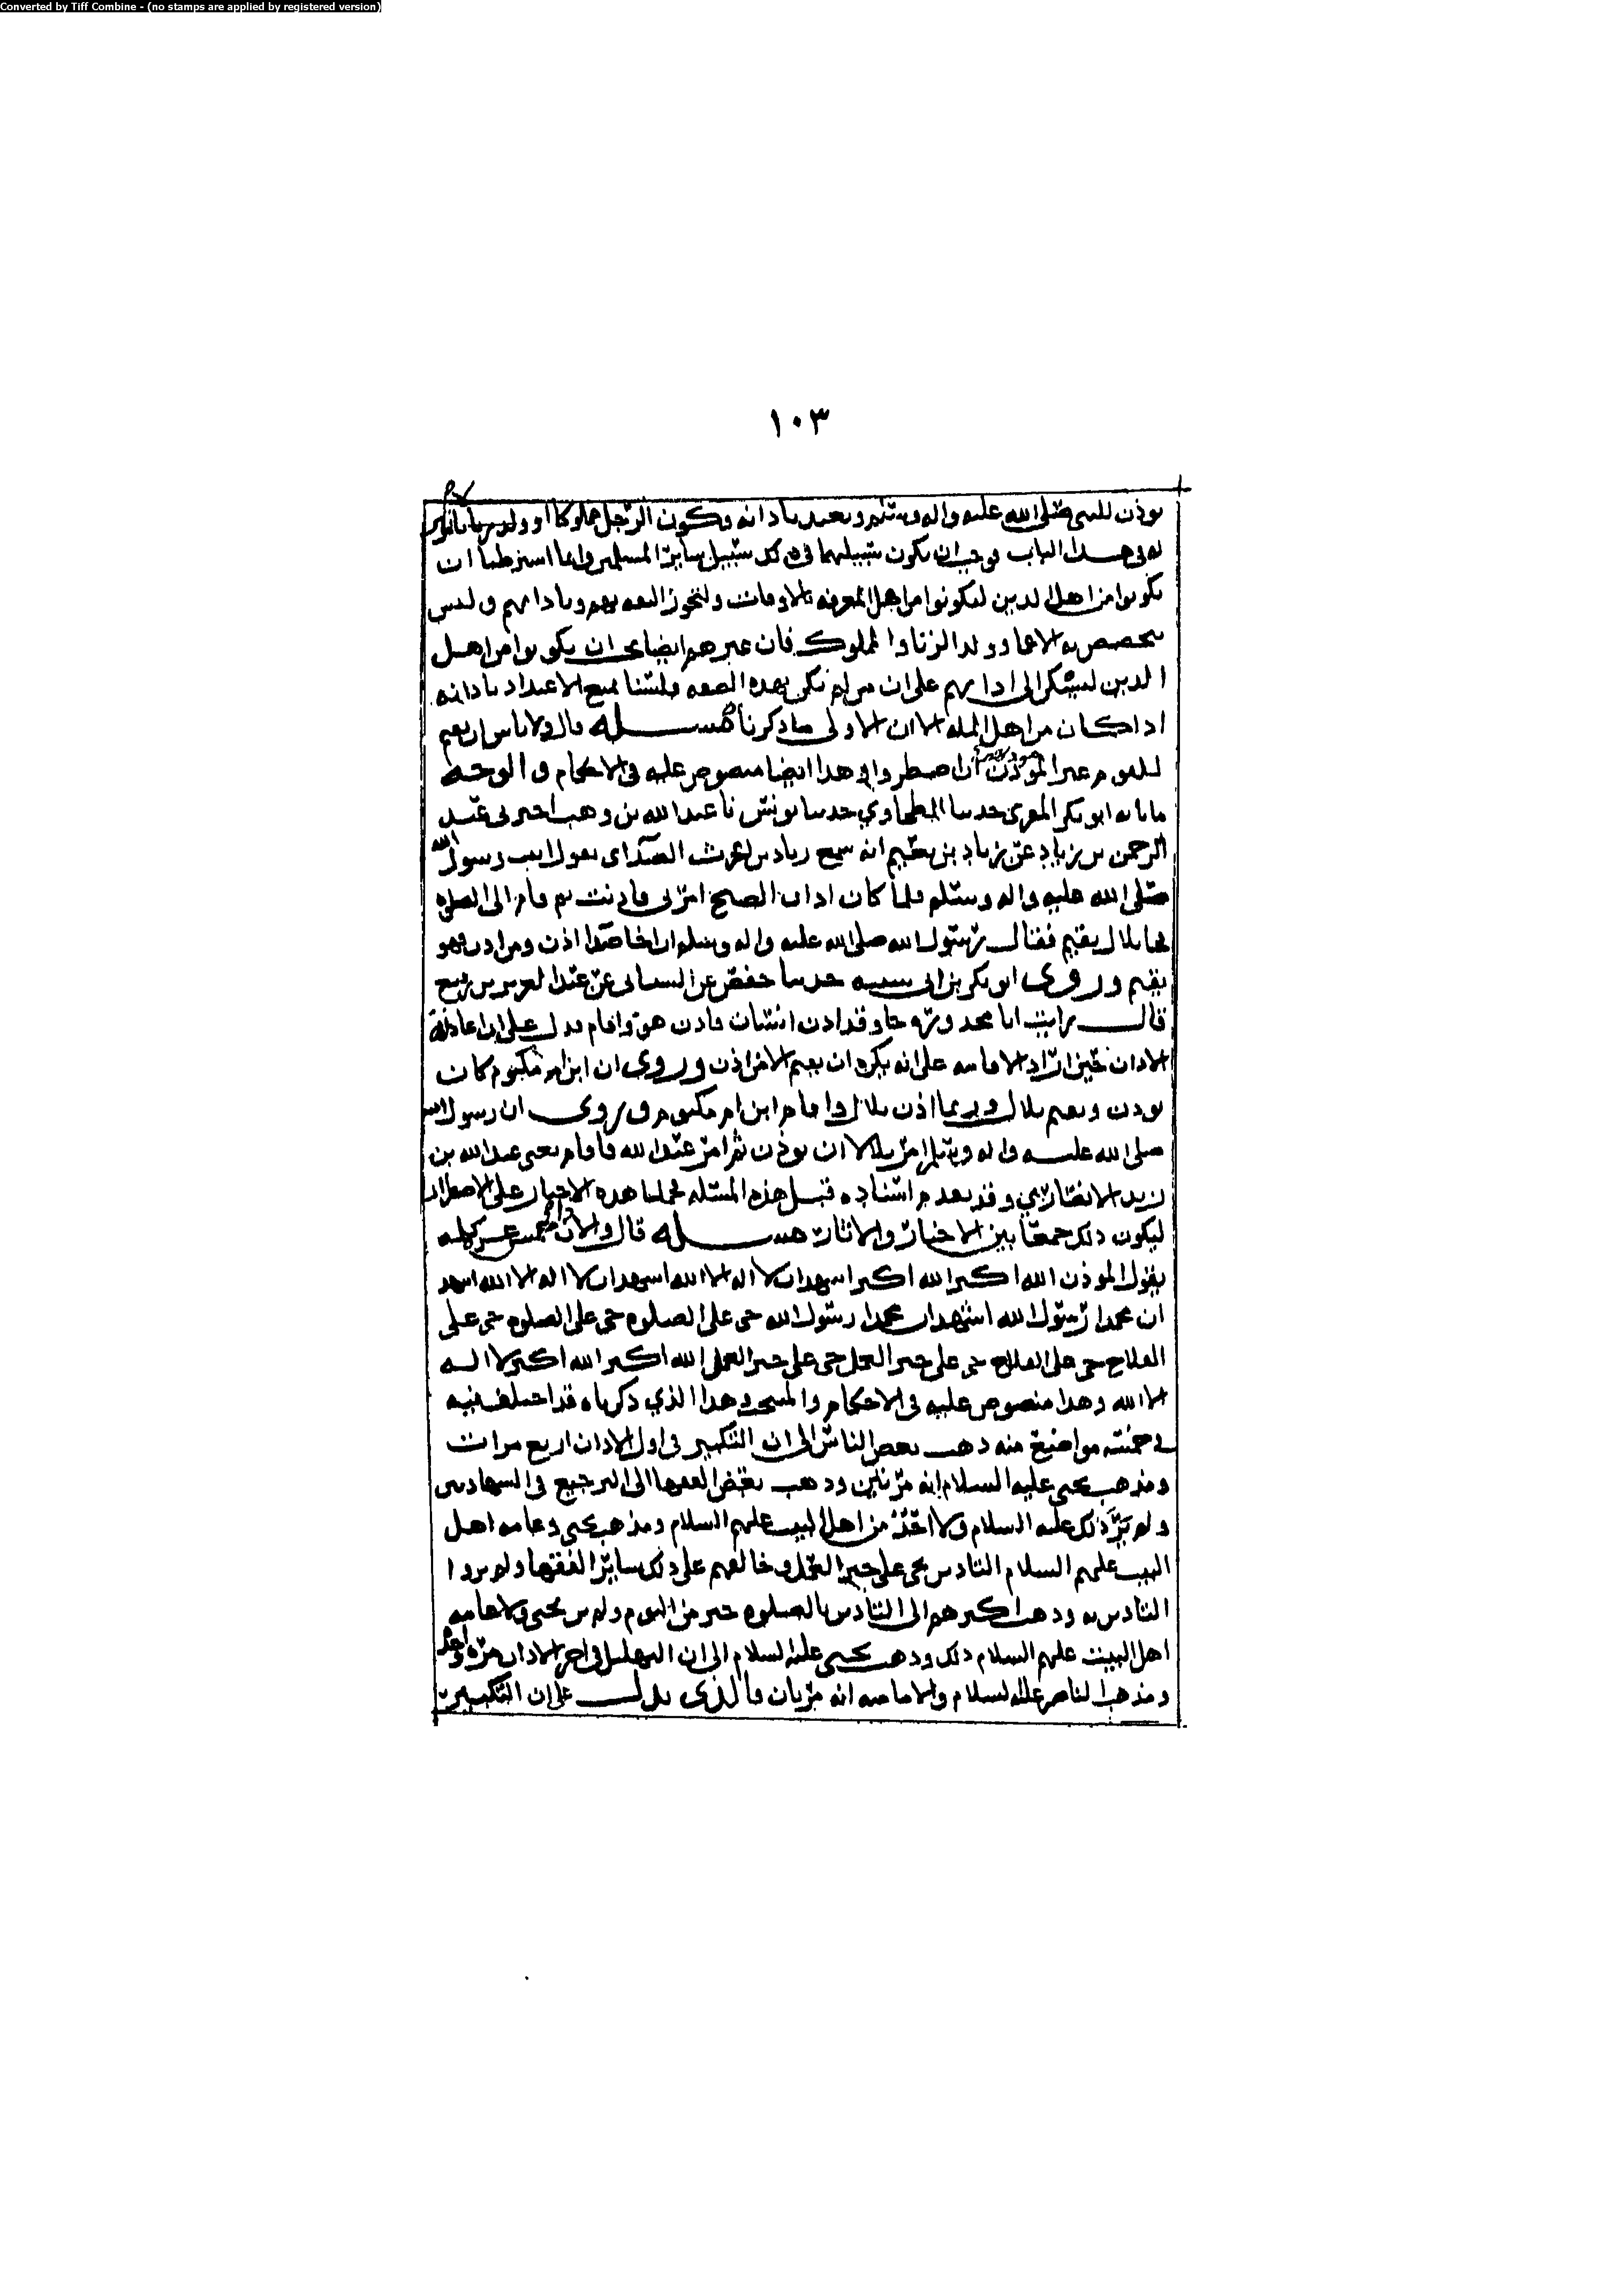 Converted by Tiff Combine - (no stamps are applied by registered version)
١٠٣
يوذن للنبي صلى الله عليه واله وسلم ويعتد باذانه وكون الرجل مملوكا او ولد زنا
له في هذا الباب فوجب ان يكون سبيلهما في ذلك سبيل سائر المسلمين وانما اشترطنا ان
يكونوا من اهل الدين ليكونوا من اهل المعرفه بالاوقات ولتجوز الثقه بهم وباذانهم وليس
يتخصص به الاعما وولد الزنا والمملوك فان غيرهم ايضا يجب ان يكونوا من اهل
الدين ليسكن الى اذانهم على ان من لم يكن بهذه الصفه فلسنا نمنع الاعتداد باذانه
اذا كان من اهل المله الا ان الاولى ما ذكرناه مسله قال ولا باس ان يقيم
للقوم غير الموذن ان اضطروا في هذا ايضا منصوص عليه في الاحكام والوجه
ما نا به ابو بكر المقري حدثنا الطحاوي حدثنا يونس نا عبدالله بن وهب اخبرني عبد
الرحمن بن زياد عن زياد بن نعيم انه سمع زياد بن الحرث الصداي يقول اتيت رسول الله
صلى الله عليه واله وسلم فلما كان اذان الصبح امرني فاذنت ثم قام الى الصلوه
فجا بلال يقيم فقال رسول الله صلى الله عليه واله وسلم ان اخا صدا اذن ومن اذن فهو
يقيم وروى ابو بكر بن ابي شيبه حدثنا حفص عن الشيباني عن عبد العزيز بن رفيع
قال رايت ابا محذوره جا وقد اذن انسان فاذن هو واقام فدل على ان اعادته
الاذان حين اراد الاقامه على انه يكره ان يقيم الا من اذن وروي ان ابن ام مكتوم كان
يوذن ويقيم بلال وربما اذن بلال واقام ابن ام مكتوم وروى ان رسول الله
صلى الله عليه واله وسلم امر بلالا ان يوذن ثم امر عبدالله فاقام يعني عبدالله بن
زيد الانصاري وقد تقدم اسناده قبل هذه المسئله فحملنا هذه الاخبار على الاضطرار
ليكون ذلك جمعا بين الاخبار والاثار مسله قال والاذان خمس عشر كلمه
يقول الموذن الله اكبر الله اكبر اشهد ان لا اله الا الله اشهد ان لا اله الا الله اشهد
ان محمدا رسول الله اشهد ان محمدا رسول الله حي على الصلوه حي على الصلوه حي على
الفلاح حي على الفلاح حي على خير العمل حي على خير العمل الله اكبر الله اكبر لا اله
الا الله وهذا منصوص عليه في الاحكام والمنتخب وهذا الذي ذكرناه قد اختلف فيه
في خمسه مواضع منه ذهب بعض الناس الى ان التكبير في اول الاذان اربع مرات
ومذهب يحيى عليه السلام انه مرتين وذهب بعض الفقها الى الترجيع في الشهادتين
ولم ير ذلك عليه السلام ولا احد من اهل البيت عليهم السلام ومذهب يحيى وعامه اهل
البيت عليهم السلام التاذين بحي على خير العمل وخالفهم على ذلك سائر الفقها ولم يروا
التاذين به وذهب اكثرهم الى التاذين بالصلوه خير من النوم ولم ير يحيى ولا عامه
اهل البيت عليهم السلام ذلك وذهب يحيى عليه السلام الى ان التهليل في اخر الاذان مره واحده
ومذهب الناصر عليه السلام والاماميه انه مرتان فالذي يدل على ان التكبير